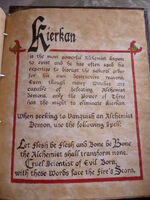 Kierkan
is the most powerful Alchemist known
to exist and he has often used his
expertise to disrupt the natural order
for his own destructive reasons.
Even though many Witches are
capable of defeating Alchemist
Demons, only the Power of Three
has the might to eliminate Kierkan.
When seeking to Vanquish an Alchemist
Demon, use the following Spell:
Let flesh be flesh and Bone be Bone
the Alchemist shall transform none.
Cruel Scientist of Evil Born,
with these Words face the Fire's Scorn.